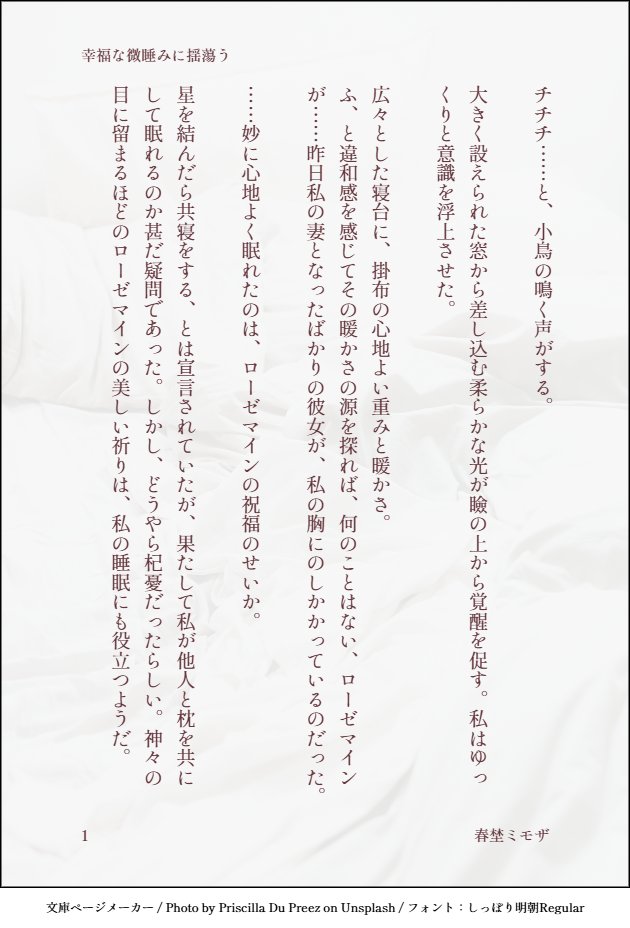 幸福な微睡みに揺蕩う
チチチ……と、小鳥の鳴く声がする。
大きく設えられた窓から差し込む柔らかな光が瞼の上から覚醒を促す。私はゆっ
くりと意識を浮上させた。
広々とした寝台に、掛布の心地よい重みと暖かさ。
ふ、と違和感を感じてその暖かさの源を探れば、何のことはない、ローゼマイン
が……昨日私の妻となったばかりの彼女が、私の胸にのしかかっているのだった。
……妙に心地よく眠れたのは、ローゼマインの祝福のせいか。
星を結んだら共寝をする、とは宣言されていたが、果たして私が他人と枕を共に
して眠れるのか甚だ疑問であった。しかし、どうやら杞憂だったらしい。神々の
目に留まるほどのローゼマインの美しい祈りは、私の睡眠にも役立つようだ。
1
春埜ミモザ
文庫ページメーカー / Photo by Priscilla Du Preez on Unsplash / フォント：しっぽり明朝Regular